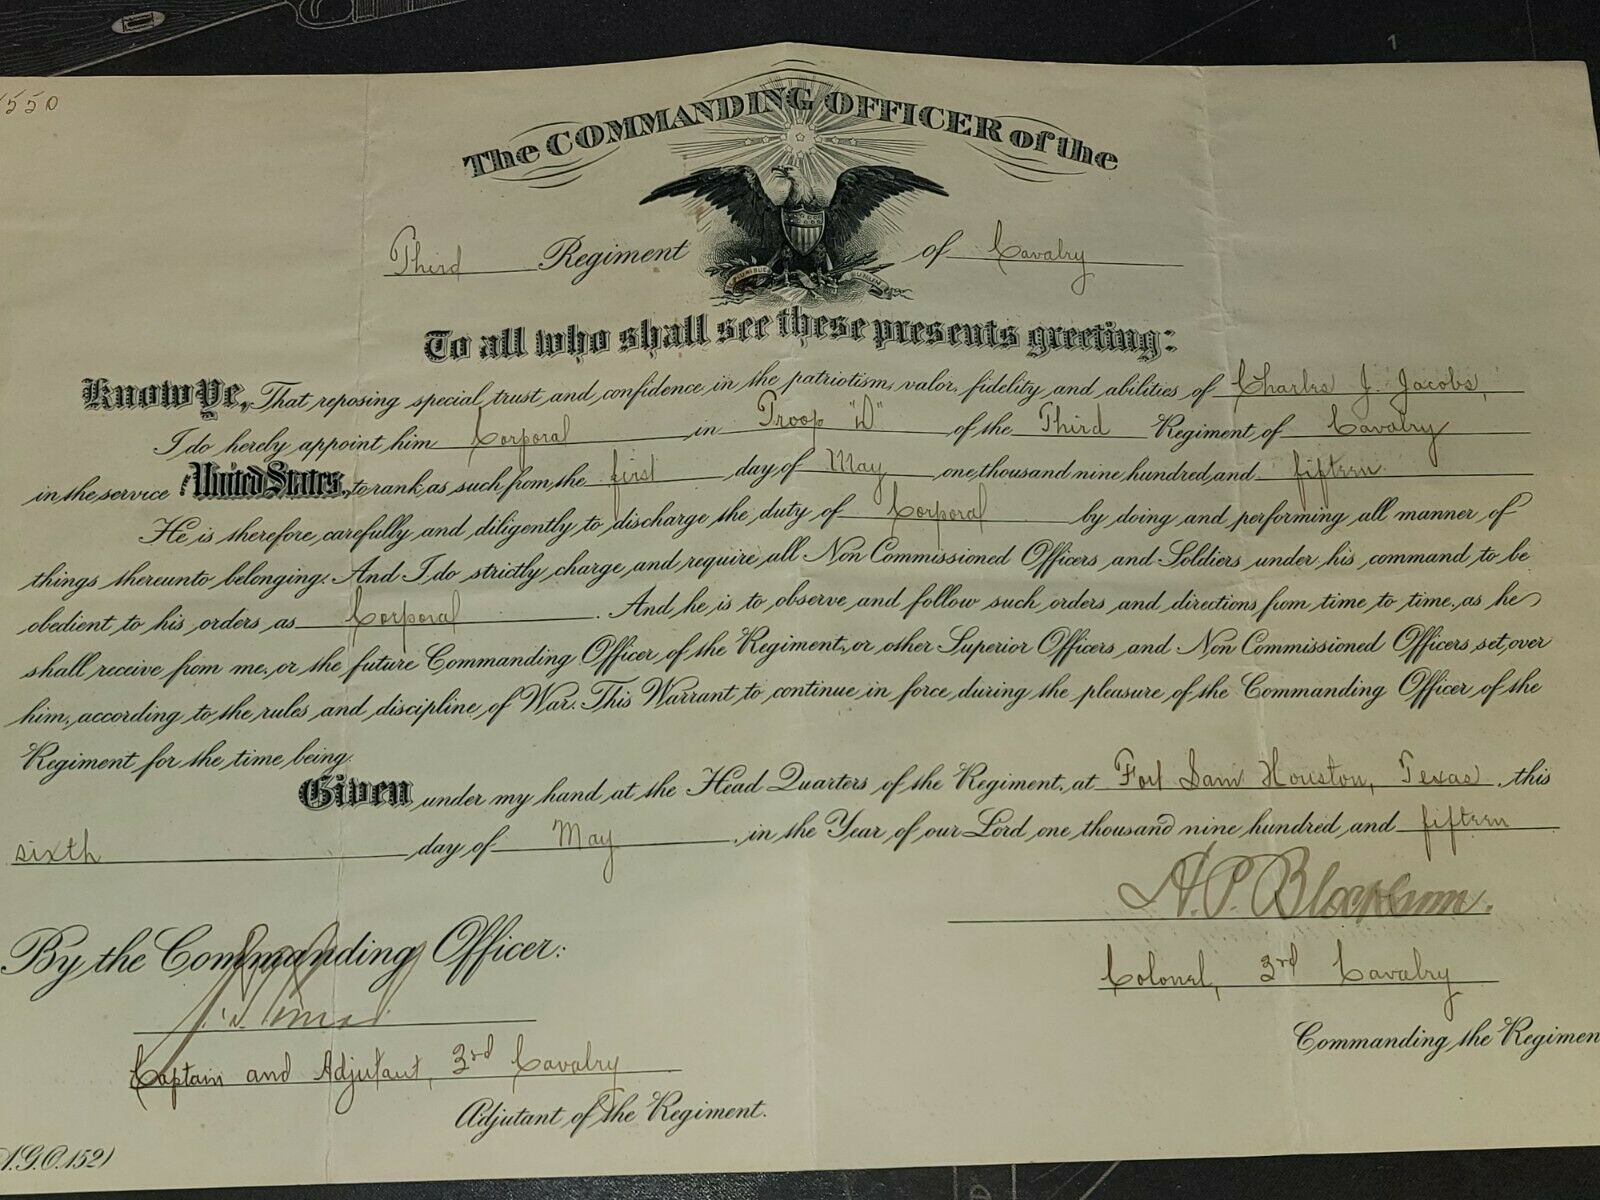 550
The COMMANDING OFFICER of the
Third Regiment of Cavalry
To all who shall see these presents greeting:
Know Ye, That reposing special trust and confidence in the patriotism, valor, fidelity and abilities of Charles J. Jacobs,
I do hereby appoint him Corporal in Troop "D" of the Third Regiment of Cavalry
in the service United States, to rank as such from the first day of May one thousand nine hundred and fifteen
He is therefore carefully and diligently to discharge the duty of Corporal by doing and performing all manner of
things thereunto belonging. And I do strictly charge and require all Non Commissioned Officers and Soldiers under his command to be
obedient to his orders as Corporal. And he is to observe and follow such orders and directions from time to time, as he
shall receive from me, or the future Commanding Officer of the Regiment, or other Superior Officers and Non Commissioned Officers set over
him, according to the rules and discipline of War. This Warrant to continue in force during the pleasure of the Commanding Officer of the
Regiment for the time being.
Given under my hand at the Head Quarters of the Regiment, at Fort Sam Houston, Texas, this
sixth day of May, in the Year of our Lord one thousand nine hundred and fifteen
A. P. Blocksom.
By the Commanding Officer:
Colonel, 3rd Cavalry
Commanding the Regimen
Captain and Adjutant, 3rd Cavalry
Adjutant of the Regiment.
A.G.O. 152)